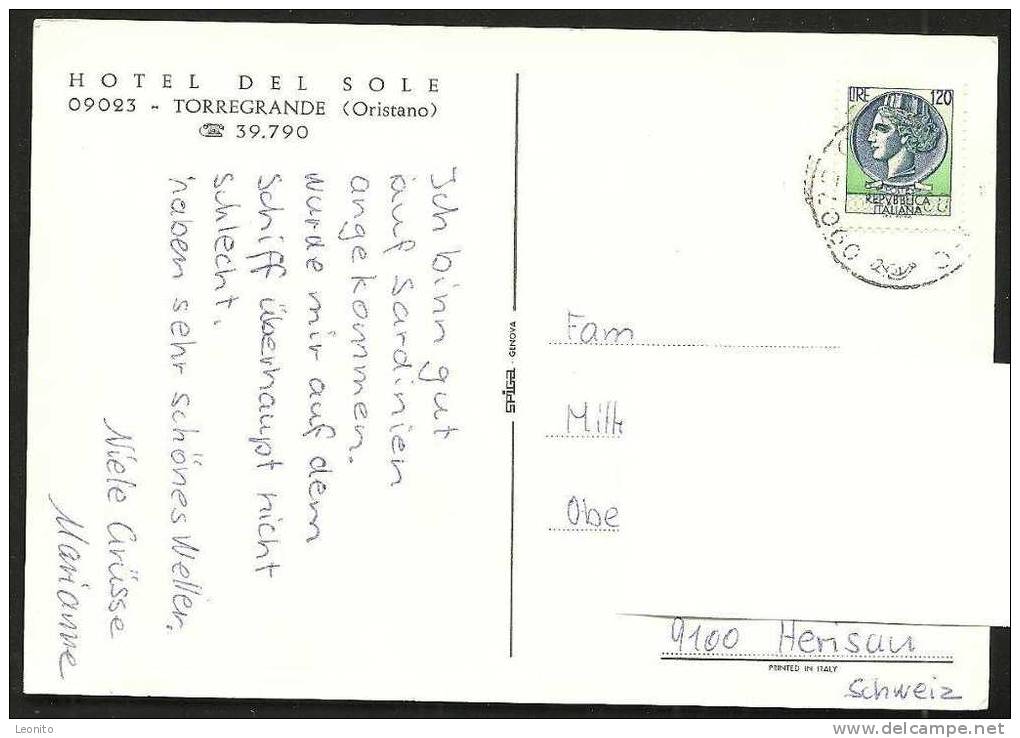 HOTEL DEL SOLE
09023 - TORREGRANDE (Oristano)
☎ 39.790
Ich binn gut
auf Sardinien
angekommen.
wurde mir auf dem
Schiff überhaupt nicht
schlecht.
haben sehr schönes Wetter.
Viele Grüsse
Marianne
SPIGA - GENOVA
LIRE 120
REPVBBLICA
ITALIANA
Fam
Obe
9100 Herisau
PRINTED IN ITALY
Schweiz
Leonito
www.delcampe.net